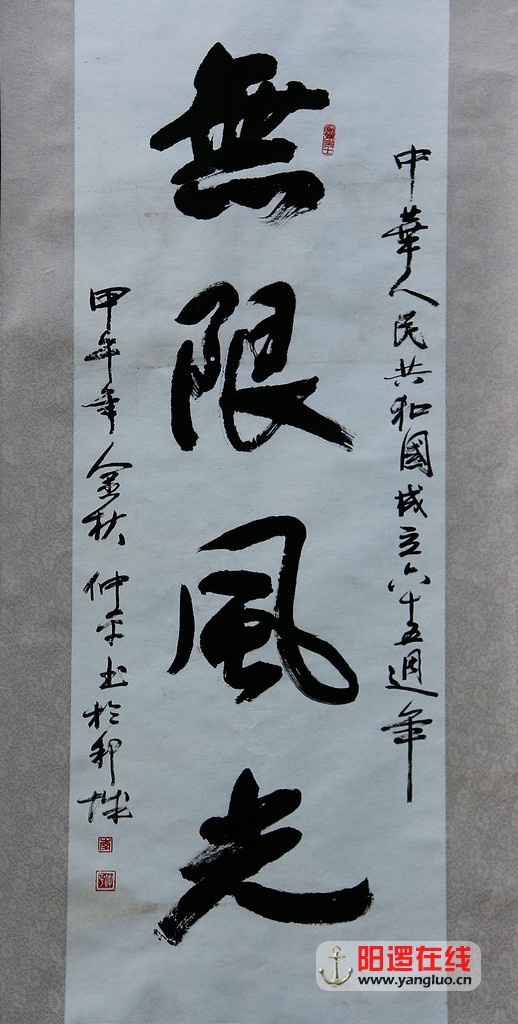 中華人民共和國成立六十五週年
無限風光
甲午年金秋仲平書於邾城
阳逻在线
www.yangluo.cn